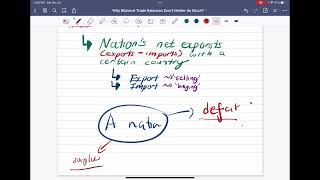 Why Bilateral Trade Balances Don't Matter as Much?
Nation's net exports
(exports - imports) with a
certain country
Export ~> 'selling'
Import ~> 'buying'
A nation
deficit
surplus